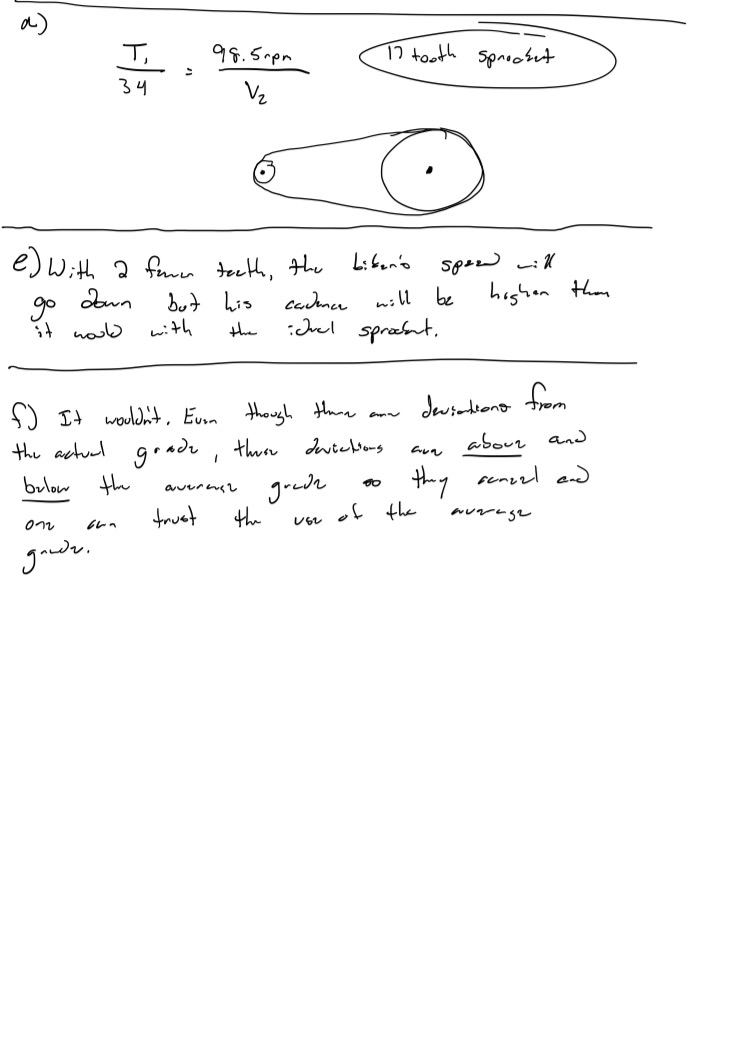 d)
T₁ / 34 = 98.5rpm / V₂
17 tooth sprocket
e) With 2 fewer teeth, the biker's speed will
go down but his cadence will be higher than
it would with the ideal sprocket.
f) It wouldn't. Even though there are deviations from
the actual grade, these deviations are above and
below the average grade so they cancel and
one can trust the use of the average
grade.